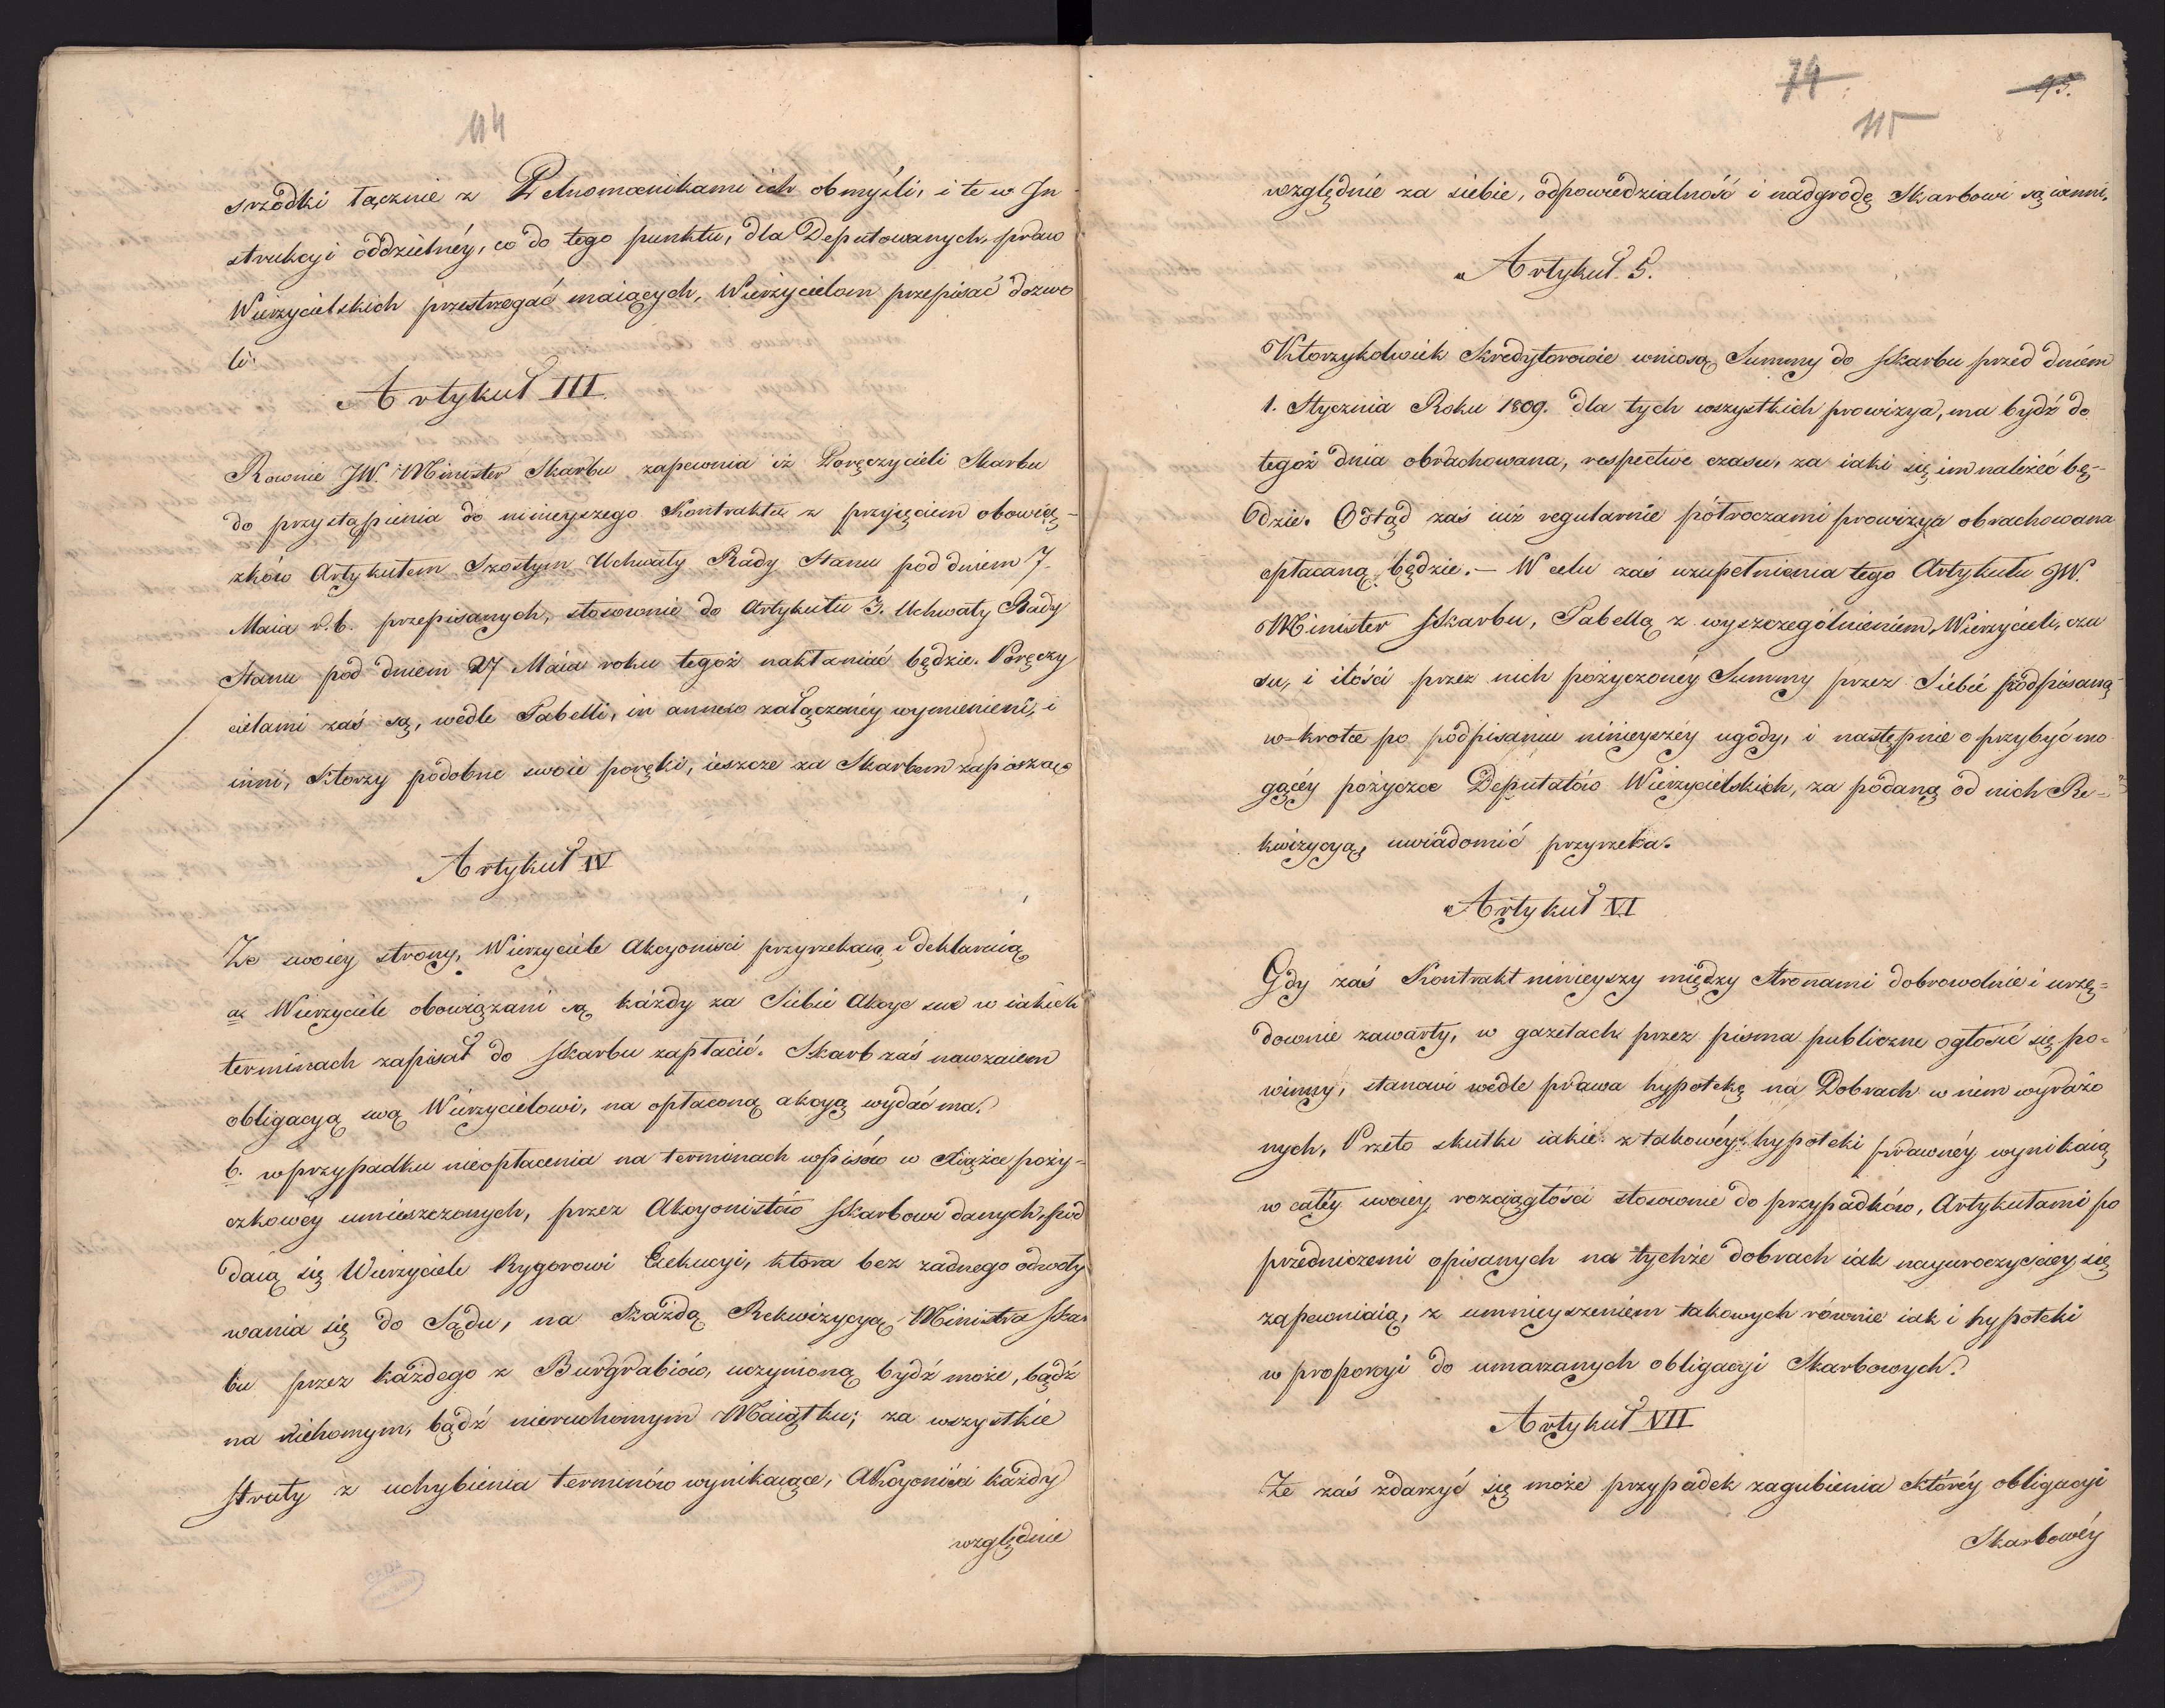 114
srzodki łącznie z Pełnomocnikami ich obmyśli, i te w In
strukcyi oddzielnéy, co do tego punktu, dla Deputowanych, praw
Wierzycielskich przestrzegać maiących, Wierzycielom przepisać dozwo
li.
Artykuł III
Rownie JW. Minister Skarbu zapewnia iż Poręczycieli Skarbu
do przystąpienia do ninieyszego Kontraktu z przyięciem obowią-
zków Artykułem Szostym Uchwały Rady Stanu pod dniem 7.
Maia r.b. przepisanych, stosownie do Artykułu 3. Uchwały Rady
Stanu pod dniem 27 Maia roku tegoż nakłaniać będzie. Poręczy
cielami zaś są, wedle Tabelli, in annexo załączonéy wymienieni, i
inni, którzy podobne swoie poręki, ieszcze za Skarbem zapiszą
Artykuł IV
Ze swoiey strony, Wierzyciele Akcyonisci przyrzekaią i deklaruią
a. Wierzyciele obowiązani są każdy za Siebie Akcye swe w iakich
terminach zapisał do Skarbu zapłacić. Skarb zaś nawzaiem
obligacyą swą Wierzycielowi, na opłaconą akcyą wydać ma.
b. w przypadku nieopłacenia na terminach wpisów w Xiążce poży-
czkowéy umieszczonych, przez Akcyonistów Skarbowi danych, pod
daią się Wierzyciele Rygorowi Exekucyi, która bez żadnego odwoły
wania się do Sądu, na każdą Rekwizycyą Ministra Skar
bu przez każdego z Burgrabiów, uczynioną bydź może, bądź
na ruchomym, bądź nieruchomym Maiątku; za wszystkie
straty z uchybienia terminów wynikaiące, Akcyonisci każdy
względnie
74
95.
115
względnie za siebie, odpowiedzialność i nadgrodę Skarbowi są winni.
Artykuł. 5.
Którzykolwiek Kredytorowie wniosą Summy do Skarbu przed dniem
1. Stycznia Roku 1809. dla tych wszystkich prowizya, ma bydź do
tegoż dnia obrachowana, respective czasu, za iaki się im należéć bę-
dzie. Odtąd zaś iuż regularnie półroczami prowizya obrachowana
opłacaną będzie. - W celu zaś uzupełnienia tego Artykułu JW.
Minister Skarbu, Tabellą z wyszczególnieniem, Wierzycieli, cza
su, i ilości przez nich pożyczonéy Summy przez Siebie podpisaną
w-krotce po podpisaniu ninieyszéy ugody, i następnie o przybyć mo
gącéy pożyczce Deputatów Wierzycielskich, za podaną od nich Re-
kwizycyą, uwiadomić przyrzeka.
Artykuł VI
Gdy zaś Kontrakt ninieyszy między Stronami dobrowolnie i urzę-
downie zawarty, w gazetach przez pisma publiczne ogłosić się po-
winny, stanowi wedle prawa hypotekę na Dobrach w niem wyrażo
nych, Przeto skutki iakie z takowéy hypoteki prawnéy wynikaią
w całéy swoiey rozciągłości stosownie do przypadków, Artykułami po
przedniczemi opisanych na tychże dobrach iak nayuroczyściey się
zapewniaią, z umnieyszeniem takowych równie iak i hypoteki
w proporcyi do umarzanych obligacyi Skarbowych.
Artykuł VII
Ze zaś zdarzyć się może przypadek zagubienia któréy obligacyi
Skarbowéy